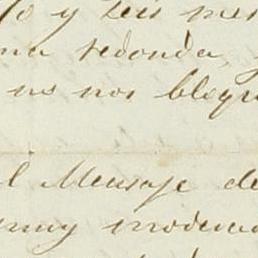 y seis mes
na redonda,
us nos bloqu
l Mensaje de
muy moderad